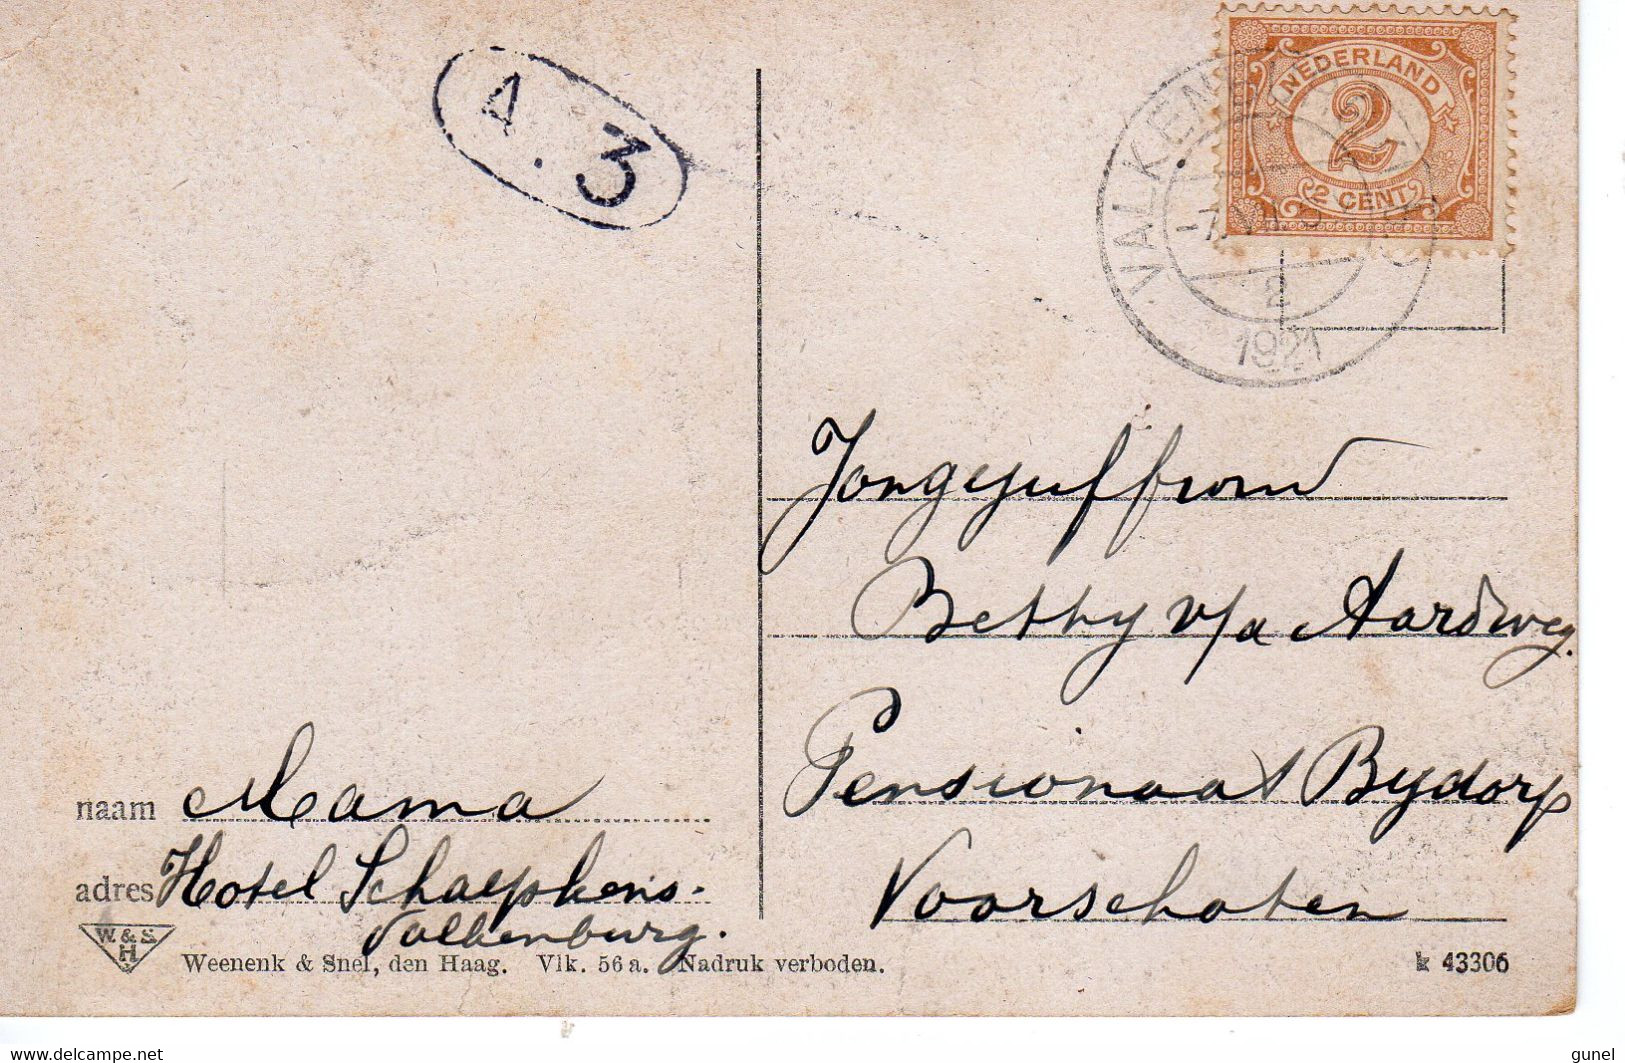 A. 3
NEDERLAND
2
2 CENT
VALKEN
-7.
2
1921
Jongejuffrouw
Betty v/d Aardweg.
Pensionaat Bijdorp
Voorschoten
naam Mama
adres Hotel Schaepkens.
Valkenburg.
W. & S.
H
Weenenk & Snel, den Haag. Vlk. 56 a. Nadruk verboden.
k 43306
www.delcampe.net
gunel